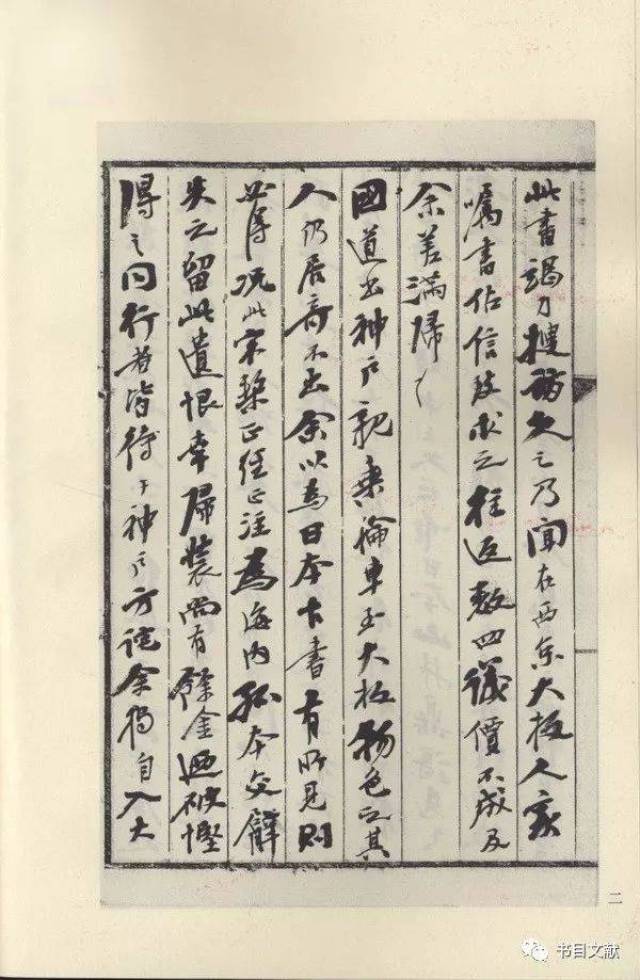 此書竭力搜訪久之乃聞在西京大板人家
囑書估信致求之往返數四議價不成及
余差滿歸
國道出神戶親乘輪車至大板物色之其
人仍居奇不出余以為日本古書有所見則
必得況此宋槧正經正注為海內孤本交臂
失之留此遺恨幸歸裝尚有餘金迺破慳
得之同行者皆待于神戶方詫余獨自入大
二
书目文献